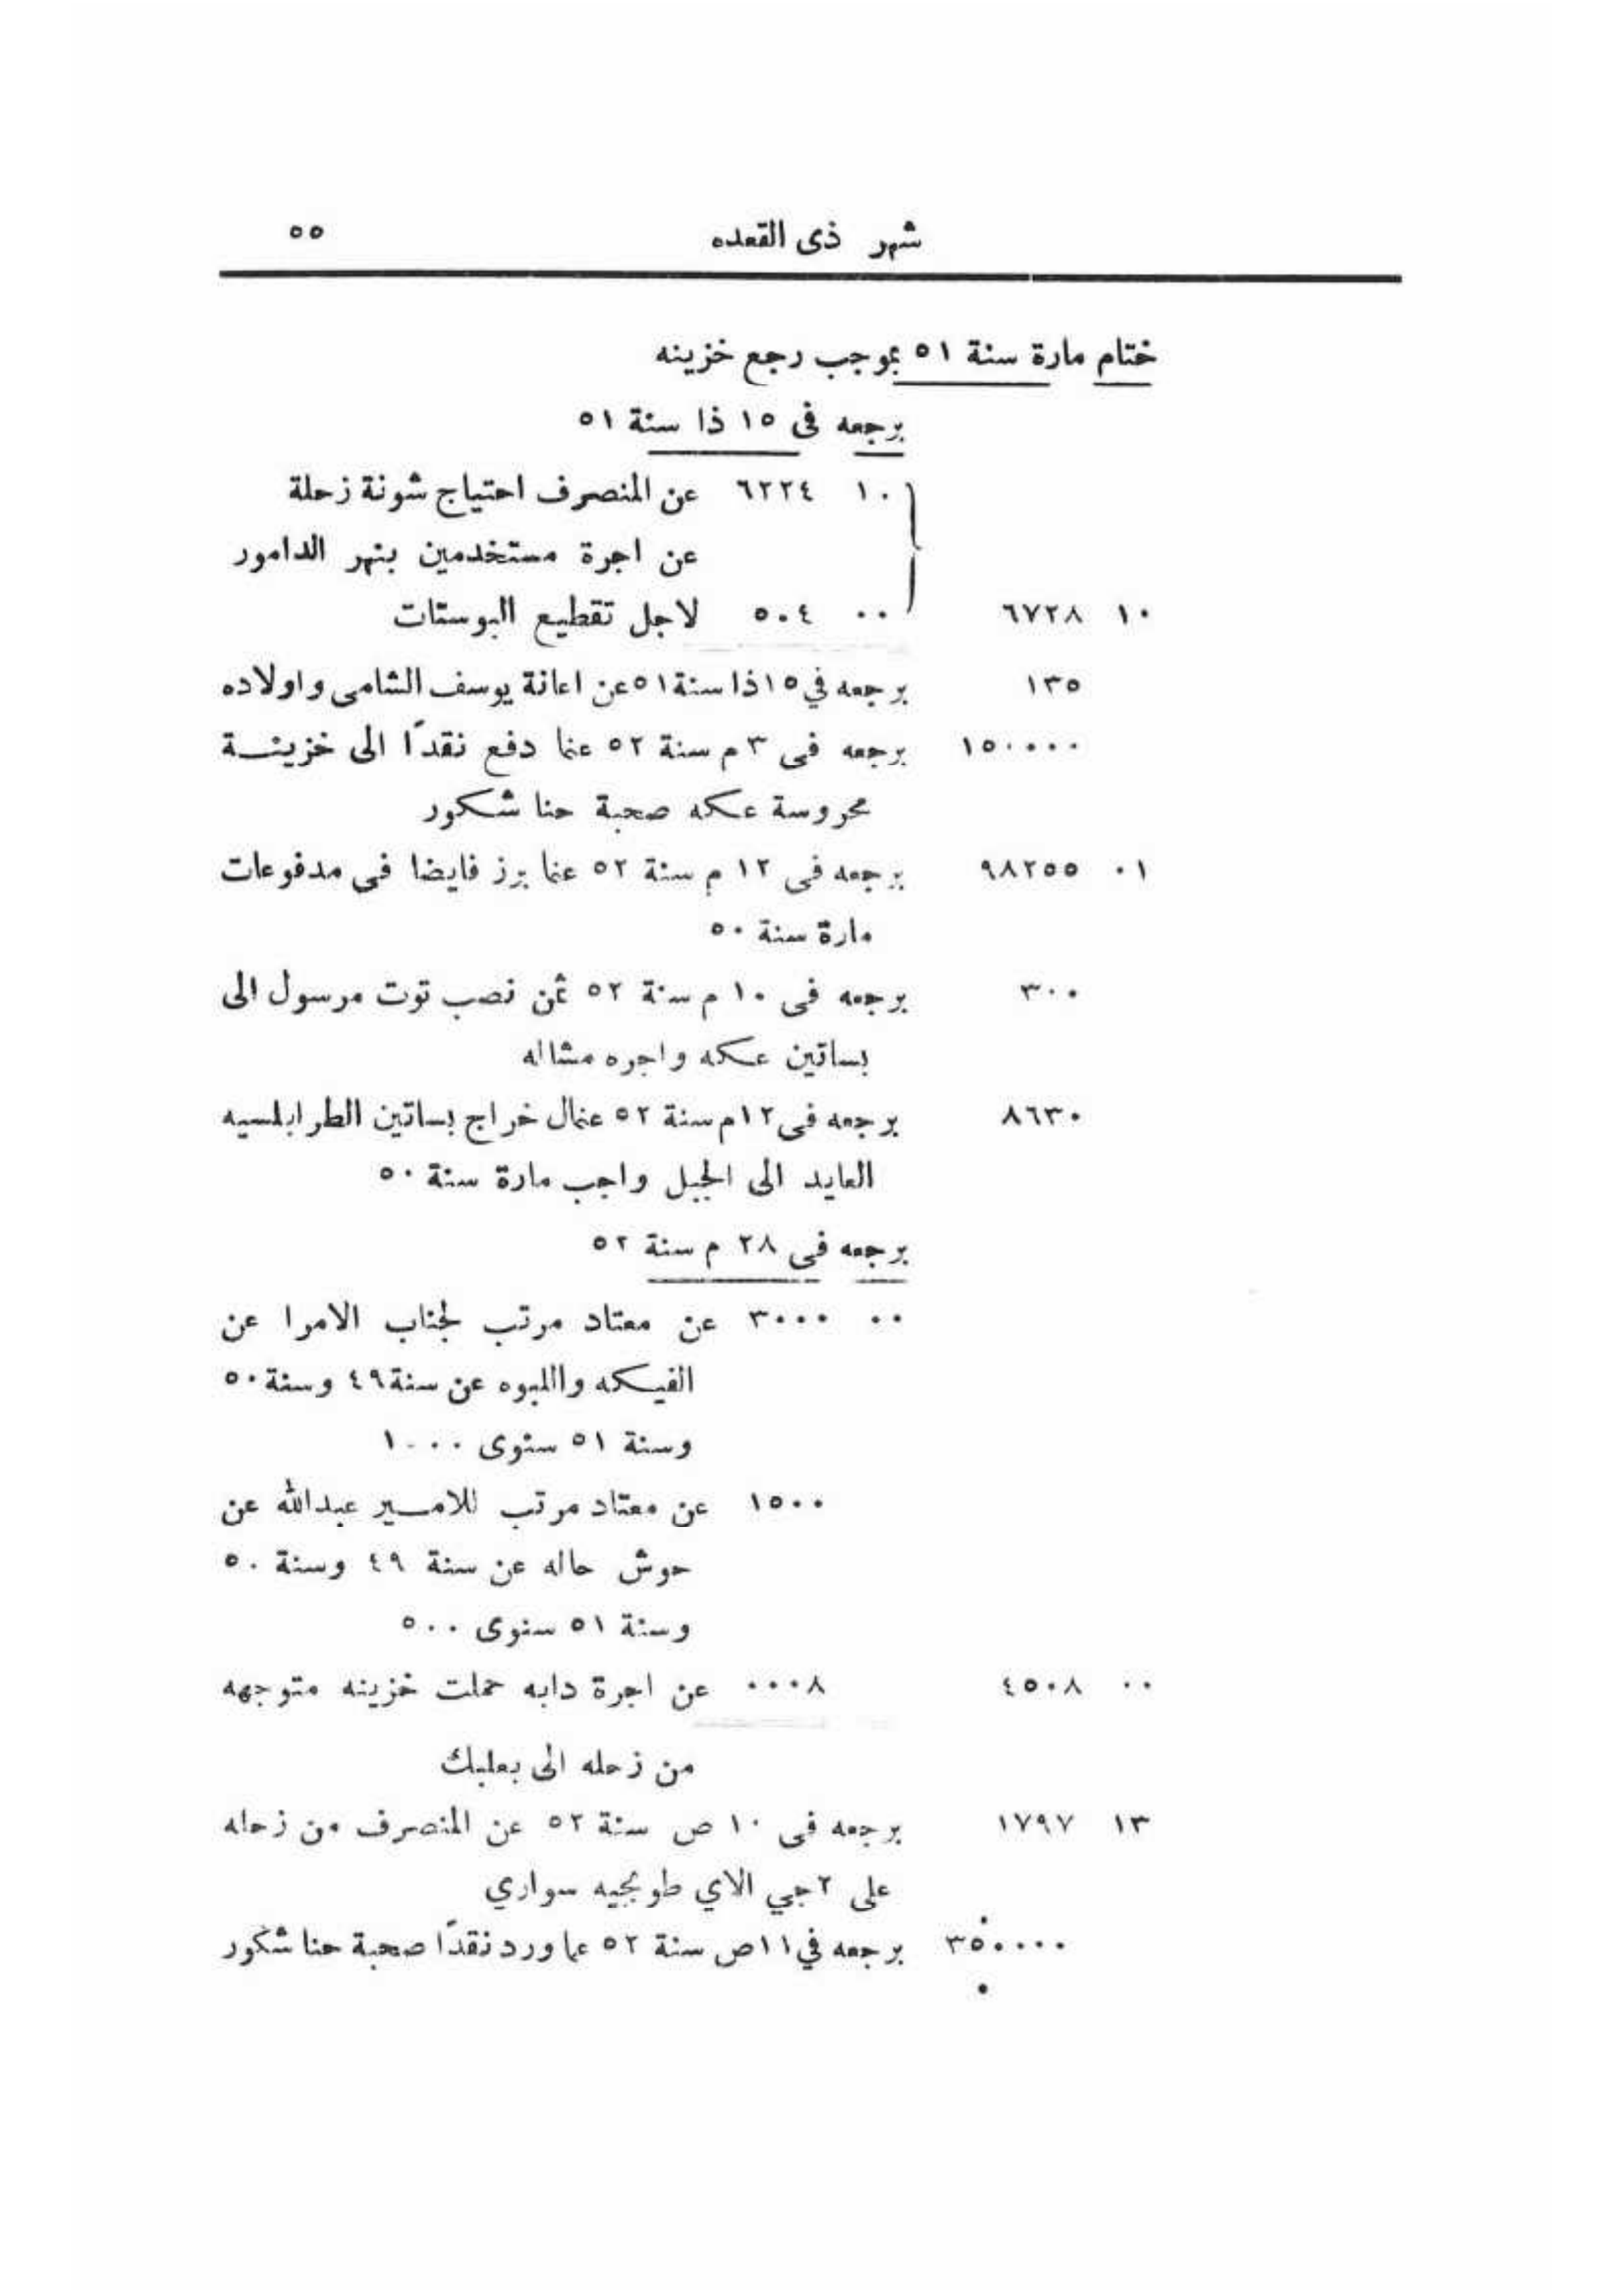 شهر ذى القعده ٥٥
ختام مارة سنة ٥١ بموجب رجع خزينه
برجعه فى ١٥ ذا سنة ٥١
١٠ ٦٢٢٤ عن المنصرف احتياج شونة زحلة
عن اجرة مستخدمين بنهر الدامور
١٠ ٦٧٢٨ ٠٠ ٥٠٤ لاجل تقطيع البوستات
١٣٥ برجعه في ١٥ ذا سنة ٥١ عن اعانة يوسف الشامى واولاده
١٥٠٠٠٠ برجعه فى ٣ م سنة ٥٢ عنما دفع نقدًا الى خزينة
محروسة عكه صحبة حنا شكور
٠١ ٩٨٢٥٥ برجعه فى ١٢ م سنة ٥٢ عنما برز فايضا فى مدفوعات
مارة سنة ٥٠
٣٠٠ برجعه فى ١٠ م سنة ٥٢ ثمن نصب توت مرسول الى
بساتين عكه واجره مشاله
٨٦٣٠ برجعه فى ١٢ م سنة ٥٢ عنمال خراج بساتين الطرابلسيه
العايد الى الجبل واجب مارة سنة ٥٠
برجعه فى ٢٨ م سنة ٥٢
٠٠ ٣٠٠٠ عن معتاد مرتب لجناب الامرا عن
الفيكه واللبوه عن سنة ٤٩ وسنة ٥٠
وسنة ٥١ سنوى ١٠٠٠
١٥٠٠ عن معتاد مرتب للامير عبدالله عن
حوش حاله عن سنة ٤٩ وسنة ٥٠
وسنة ٥١ سنوى ٥٠٠
٠٠ ٤٥٠٨ ٠٠٠٨ عن اجرة دابه حملت خزينه متوجهه
من زحله الى بعلبك
١٣ ١٧٩٧ برجعه فى ١٠ ص سنة ٥٢ عن المنصرف من زحله
على ٢ جي الاي طوبجيه سواري
٣٥٠٠٠٠ برجعه في ١١ ص سنة ٥٢ عما ورد نقدًا صحبة حنا شكور